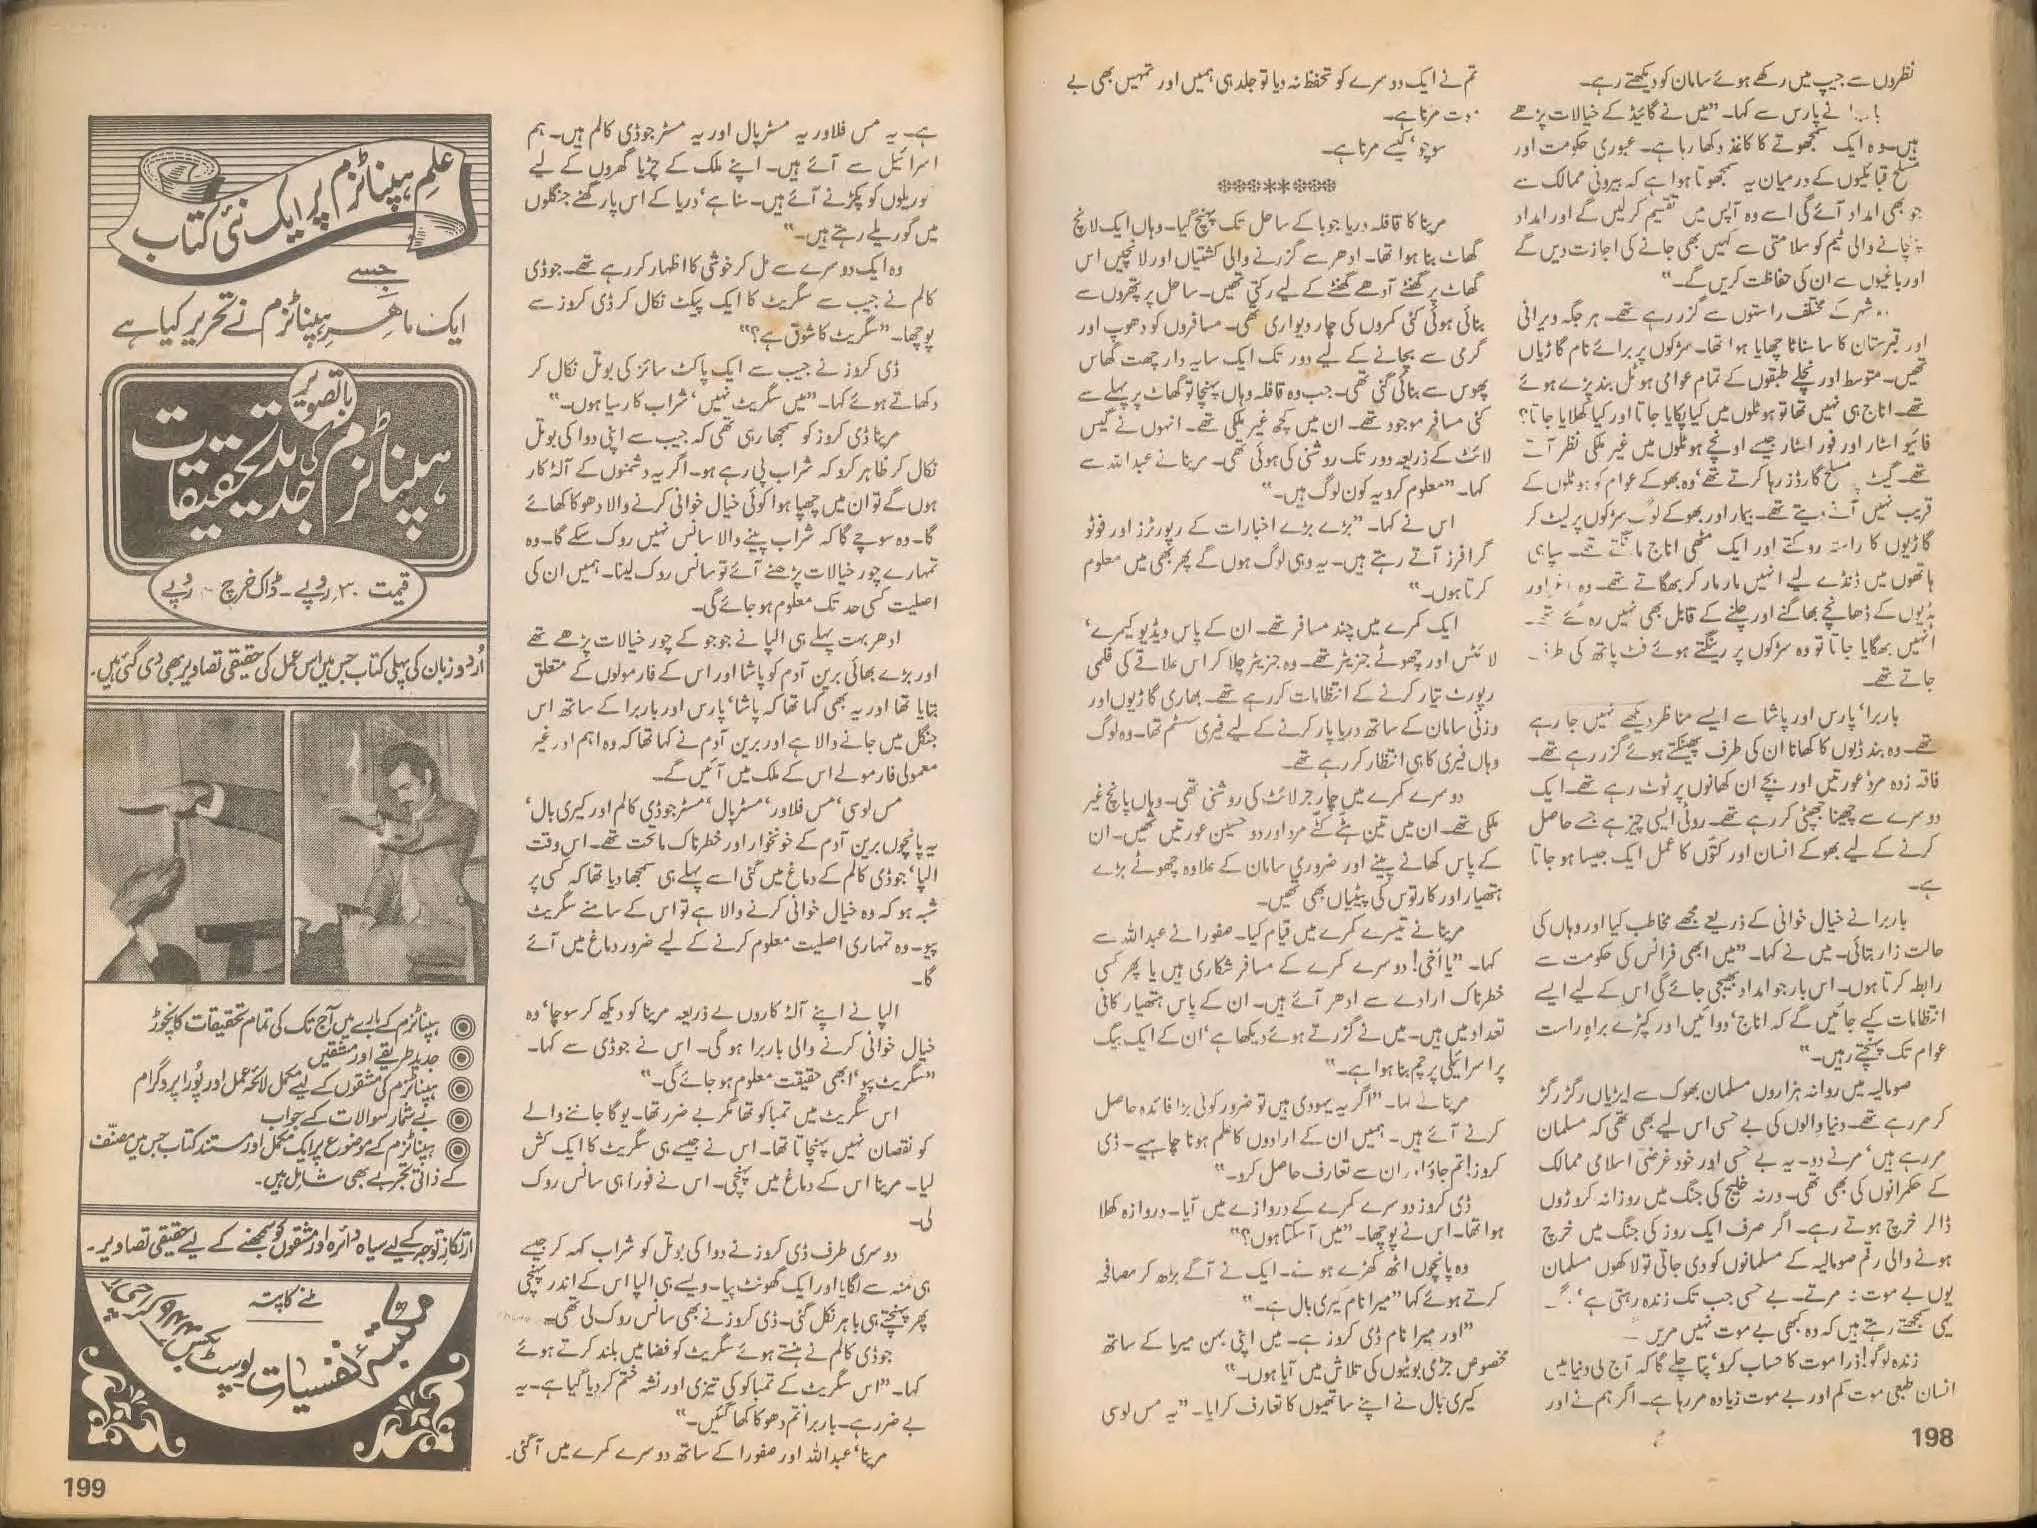 نظروں سے جیپ میں رکھے ہوئے سامان کو دیکھتے رہے۔
نے پارس سے کہا۔ "میں نے گائیڈ کے خیالات پڑھے
ہیں۔ وہ ایک سمجھوتے کا کاغذ دکھا رہا ہے۔ عبوری حکومت اور
مسلح قبائلیوں کے درمیان یہ سمجھوتا ہوا ہے کہ بیرونی ممالک سے
جو بھی امداد آئے گی اسے وہ آپس میں تقسیم کر لیں گے اور امداد
پہنچانے والی ٹیم کو سلامتی سے کہیں بھی جانے کی اجازت دیں گے
اور باغیوں سے ان کی حفاظت کریں گے۔"
وہ شہر کے مختلف راستوں سے گزر رہے تھے۔ ہر جگہ ویرانی
اور قبرستان کا سا سناٹا چھایا ہوا تھا۔ سڑکوں پر برائے نام گاڑیاں
تھیں۔ متوسط اور نچلے طبقوں کے تمام عوامی ہوٹل بند پڑے ہوئے
تھے۔ اناج ہی نہیں تھا تو ہوٹلوں میں کیا پکایا جاتا اور کیا کھلایا جاتا؟
فائیو اسٹار اور فور اسٹار جیسے اونچے ہوٹلوں میں غیر ملکی نظر آتے
تھے۔ گیٹ پر مسلح گارڈز رہا کرتے تھے' وہ بھوکے عوام کو ہوٹلوں کے
قریب نہیں آنے دیتے تھے۔ بیمار اور بھوکے لوگ سڑکوں پر لیٹ کر
گاڑیوں کا راستہ روکتے اور ایک مٹھی اناج مانگتے تھے۔ سپاہی
ہاتھوں میں ڈنڈے لیے انہیں مار مار کر بھگاتے تھے۔ وہ اور
ہڈیوں کے ڈھانچے بھاگنے اور چلنے کے قابل بھی نہیں رہ گئے تھے۔
انہیں بھگایا جاتا تو وہ سڑکوں پر رینگتے ہوئے فٹ پاتھ کی طرف
جاتے تھے۔
باربرا' پارس اور پاشا سے ایسے مناظر دیکھے نہیں جا رہے
تھے۔ وہ بند ڈبوں کا کھانا ان کی طرف پھینکتے ہوئے گزر رہے تھے۔
فاقہ زدہ مرد' عورتیں اور بچے ان کھانوں پر ٹوٹ رہے تھے۔ ایک
دوسرے سے چھینا جھپٹی کر رہے تھے۔ روٹی ایسی چیز ہے جسے حاصل
کرنے کے لیے بھوکے انسان اور کتوں کا عمل ایک جیسا ہو جاتا
ہے۔
باربرا نے خیال خوانی کے ذریعے مجھے مخاطب کیا اور وہاں کی
حالت زار بتائی۔ میں نے کہا۔ "میں ابھی فرانس کی حکومت سے
رابطہ کرتا ہوں۔ اس بار جو امداد بھیجی جائے گی اس کے لیے ایسے
انتظامات کیے جائیں گے کہ اناج' دوائیں اور کپڑے براہِ راست
عوام تک پہنچتے رہیں۔"
صومالیہ میں روزانہ ہزاروں مسلمان بھوک سے ایڑیاں رگڑ رگڑ
کر مر رہے تھے۔ دنیا والوں کی بے حسی اس لیے بھی تھی کہ مسلمان
مر رہے ہیں' مرنے دو۔ یہ بے حسی اور خود غرضی اسلامی ممالک
کے حکمرانوں کی بھی تھی۔ ورنہ خلیج کی جنگ میں روزانہ کروڑوں
ڈالر خرچ ہوتے رہے۔ اگر صرف ایک روز کی جنگ میں خرچ
ہونے والی رقم صومالیہ کے مسلمانوں کو دی جاتی تو لاکھوں مسلمان
یوں بے موت نہ مرتے۔ بے حسی جب تک زندہ رہتی ہے'
یہی سمجھتے رہتے ہیں کہ وہ کبھی بے موت نہیں مریں
زندہ لوگو! ذرا موت کا حساب کرو' پتا چلے گا کہ آج کی دنیا میں
انسان طبعی موت کم اور بے موت زیادہ مر رہا ہے۔ اگر ہم نے اور
تم نے ایک دوسرے کو تحفظ نہ دیا تو جلد ہی ہمیں اور تمہیں بھی بے
موت مرنا ہے۔
سوچو' کیسے مرنا ہے۔
❊❊❊**❊❊❊
مرینا کا قافلہ دریا جوبا کے ساحل تک پہنچ گیا۔ وہاں ایک لانچ
گھاٹ بنا ہوا تھا۔ ادھر سے گزرنے والی کشتیاں اور لانچیں اس
گھاٹ پر گھنٹے آدھے گھنٹے کے لیے رکتی تھیں۔ ساحل پر پتھروں سے
بنائی ہوئی کئی کمروں کی چار دیواری تھی۔ مسافروں کو دھوپ اور
گرمی سے بچانے کے لیے دور تک ایک سایہ دار چھت گھاس
پھوس سے بنائی گئی تھی۔ جب وہ قافلہ وہاں پہنچا تو گھاٹ پر پہلے سے
کئی مسافر موجود تھے۔ ان میں کچھ غیر ملکی تھے۔ انہوں نے گیس
لائٹ کے ذریعہ دور تک روشنی کی ہوئی تھی۔ مرینا نے عبداللہ سے
کہا۔ "معلوم کرو یہ کون لوگ ہیں۔"
اس نے کہا۔ "بڑے بڑے اخبارات کے رپورٹرز اور فوٹو
گرافرز آتے رہتے ہیں۔ یہ وہی لوگ ہوں گے پھر بھی میں معلوم
کرتا ہوں۔"
ایک کمرے میں چند مسافر تھے۔ ان کے پاس ویڈیو کیمرے'
لائٹس اور چھوٹے جنریٹر تھے۔ وہ جنریٹر چلا کر اس علاقے کی فلمی
رپورٹ تیار کرنے کے انتظامات کر رہے تھے۔ بھاری گاڑیوں اور
وزنی سامان کے ساتھ دریا پار کرنے کے لیے فیری سسٹم تھا۔ وہ لوگ
وہاں فیری کا ہی انتظار کر رہے تھے۔
دوسرے کمرے میں چارجر لائٹ کی روشنی تھی۔ وہاں پانچ غیر
ملکی تھے۔ ان میں تین ہٹے کٹے مرد اور دو حسین عورتیں تھیں۔ ان
کے پاس کھانے پینے اور ضروری سامان کے علاوہ چھوٹے بڑے
ہتھیار اور کارتوس کی پیٹیاں بھی تھیں۔
مرینا نے تیسرے کمرے میں قیام کیا۔ صفورا نے عبداللہ سے
کہا۔ "یا اُخی! دوسرے کمرے کے مسافر شکاری ہیں یا پھر کسی
خطرناک ارادے سے ادھر آئے ہیں۔ ان کے پاس ہتھیار کافی
تعداد میں ہیں۔ میں نے گزرتے ہوئے دیکھا ہے' ان کے ایک بیگ
پر اسرائیلی پرچم بنا ہوا ہے۔"
مرینا نے کہا۔ "اگر یہ یہودی ہیں تو ضرور کوئی بڑا فائدہ حاصل
کرنے آئے ہیں۔ ہمیں ان کے ارادوں کا علم ہونا چاہیے۔ ڈی
کروز! تم جاؤ اور ان سے تعارف حاصل کرو۔"
ڈی کروز دوسرے کمرے کے دروازے میں آیا۔ دروازہ کھلا
ہوا تھا۔ اس نے پوچھا۔ "میں آ سکتا ہوں؟"
وہ پانچوں اٹھ کھڑے ہوئے۔ ایک نے آگے بڑھ کر مصافحہ
کرتے ہوئے کہا "میرا نام کیری ہال ہے۔"
"اور میرا نام ڈی کروز ہے۔ میں اپنی بہن میریا کے ساتھ
مخصوص جڑی بوٹیوں کی تلاش میں آیا ہوں۔"
کیری ہال نے اپنے ساتھیوں کا تعارف کرایا۔ "یہ مس لوسی
198
ہے۔ یہ مس فلاور یہ مسٹر پال اور یہ مسٹر جوڈی کالم ہیں۔ ہم
اسرائیل سے آئے ہیں۔ اپنے ملک کے چڑیا گھروں کے لیے
گوریلوں کو پکڑنے آئے ہیں۔ سنا ہے' دریا کے اس پار گھنے جنگلوں
میں گوریلے رہتے ہیں۔"
وہ ایک دوسرے سے مل کر خوشی کا اظہار کر رہے تھے۔ جوڈی
کالم نے جیب سے سگریٹ کا ایک پیکٹ نکال کر ڈی کروز سے
پوچھا۔ "سگریٹ کا شوق ہے؟"
ڈی کروز نے جیب سے ایک پاکٹ سائز کی بوتل نکال کر
دکھاتے ہوئے کہا۔ "میں سگریٹ نہیں' شراب کا رسیا ہوں۔"
مرینا ڈی کروز کو سمجھا رہی تھی کہ جیب سے اپنی دوا کی بوتل
نکال کر ظاہر کرو کہ شراب پی رہے ہو۔ اگر یہ دشمنوں کے آلۂ کار
ہوں گے تو ان میں چھپا ہوا کوئی خیال خوانی کرنے والا دھوکا کھائے
گا۔ وہ سوچے گا کہ شراب پینے والا سانس نہیں روک سکے گا۔ وہ
تمہارے چور خیالات پڑھنے آئے تو سانس روک لینا۔ ہمیں ان کی
اصلیت کسی حد تک معلوم ہو جائے گی۔
ادھر بہت پہلے ہی الپا نے جوجو کے چور خیالات پڑھے تھے
اور بڑے بھائی برین آدم کو پاشا اور اس کے فارمولوں کے متعلق
بتایا تھا اور یہ بھی کہا تھا کہ پاشا' پارس اور باربرا کے ساتھ اس
جنگل میں جانے والا ہے اور برین آدم نے کہا تھا کہ وہ اہم اور غیر
معمولی فارمولے اس کے ملک میں آئیں گے۔
مس لوسی' مس فلاور' مسٹر پال' مسٹر جوڈی کالم اور کیری ہال'
یہ پانچوں برین آدم کے خونخوار اور خطرناک ماتحت تھے۔ اس وقت
الپا' جوڈی کالم کے دماغ میں گئی اسے پہلے ہی سمجھا دیا تھا کہ کسی پر
شبہ ہو کہ وہ خیال خوانی کرنے والا ہے تو اس کے سامنے سگریٹ
پیو۔ وہ تمہاری اصلیت معلوم کرنے کے لیے ضرور دماغ میں آئے
گا۔
الپا نے اپنے آلۂ کاروں کے ذریعہ مرینا کو دیکھ کر سوچا' وہ
خیال خوانی کرنے والی باربرا ہو گی۔ اس نے جوڈی سے کہا۔
"سگریٹ پیو' ابھی حقیقت معلوم ہو جائے گی۔"
اس سگریٹ میں تمباکو تھا مگر بے ضرر تھا۔ یوگا جاننے والے
کو نقصان نہیں پہنچاتا تھا۔ اس نے جیسے ہی سگریٹ کا ایک کش
لیا۔ مرینا اس کے دماغ میں پہنچی۔ اس نے فوراً ہی سانس روک
لی۔
دوسری طرف ڈی کروز نے دوا کی بوتل کو شراب کہہ کر جیسے
ہی منہ سے لگایا اور ایک گھونٹ پیا۔ ویسے ہی الپا اس کے اندر پہنچی
پھر پہنچتے ہی باہر نکل گئی۔ ڈی کروز نے بھی سانس روک لی تھی۔
جوڈی کالم نے ہنستے ہوئے سگریٹ کو فضا میں بلند کرتے ہوئے
کہا۔ "اس سگریٹ کے تمباکو کی تیزی اور نشہ ختم کر دیا گیا ہے۔ یہ
بے ضرر ہے۔ باربرا تم دھوکا کھا گئیں۔"
مرینا' عبداللہ اور صفورا کے ساتھ دوسرے کمرے میں آ گئی۔
علمِ ہپناٹزم پر ایک نئی کتاب
جسے
ایک ماہرِ ہپناٹزم نے تحریر کیا ہے
باتصویر
ہپناٹزم کی جدید تحقیقات
قیمت ۳۰ روپے - ڈاک خرچ روپے
اُردو زبان کی پہلی کتاب جس میں اس عمل کی حقیقی تصاویر بھی دی گئی ہیں۔
ہپناٹزم کے بارے میں آج تک کی تمام تحقیقات کا نچوڑ
جدید طریقے اور مشقیں
ہپناٹزم کی مشقوں کے لیے مکمل لائحہ عمل اور پورا پروگرام
بے شمار سوالات کے جواب
ہپناٹزم کے موضوع پر ایک مکمل اور مستند کتاب جس میں مصنف
کے ذاتی تجربے بھی شامل ہیں۔
ارتکازِ توجہ کے لیے سیاہ دائرہ اور مشقوں کو سمجھنے کے لیے حقیقی تصاویر۔
ملنے کا پتہ
مکتبہ نفسیات پوسٹ بکس ۹۴۴ کراچی
199